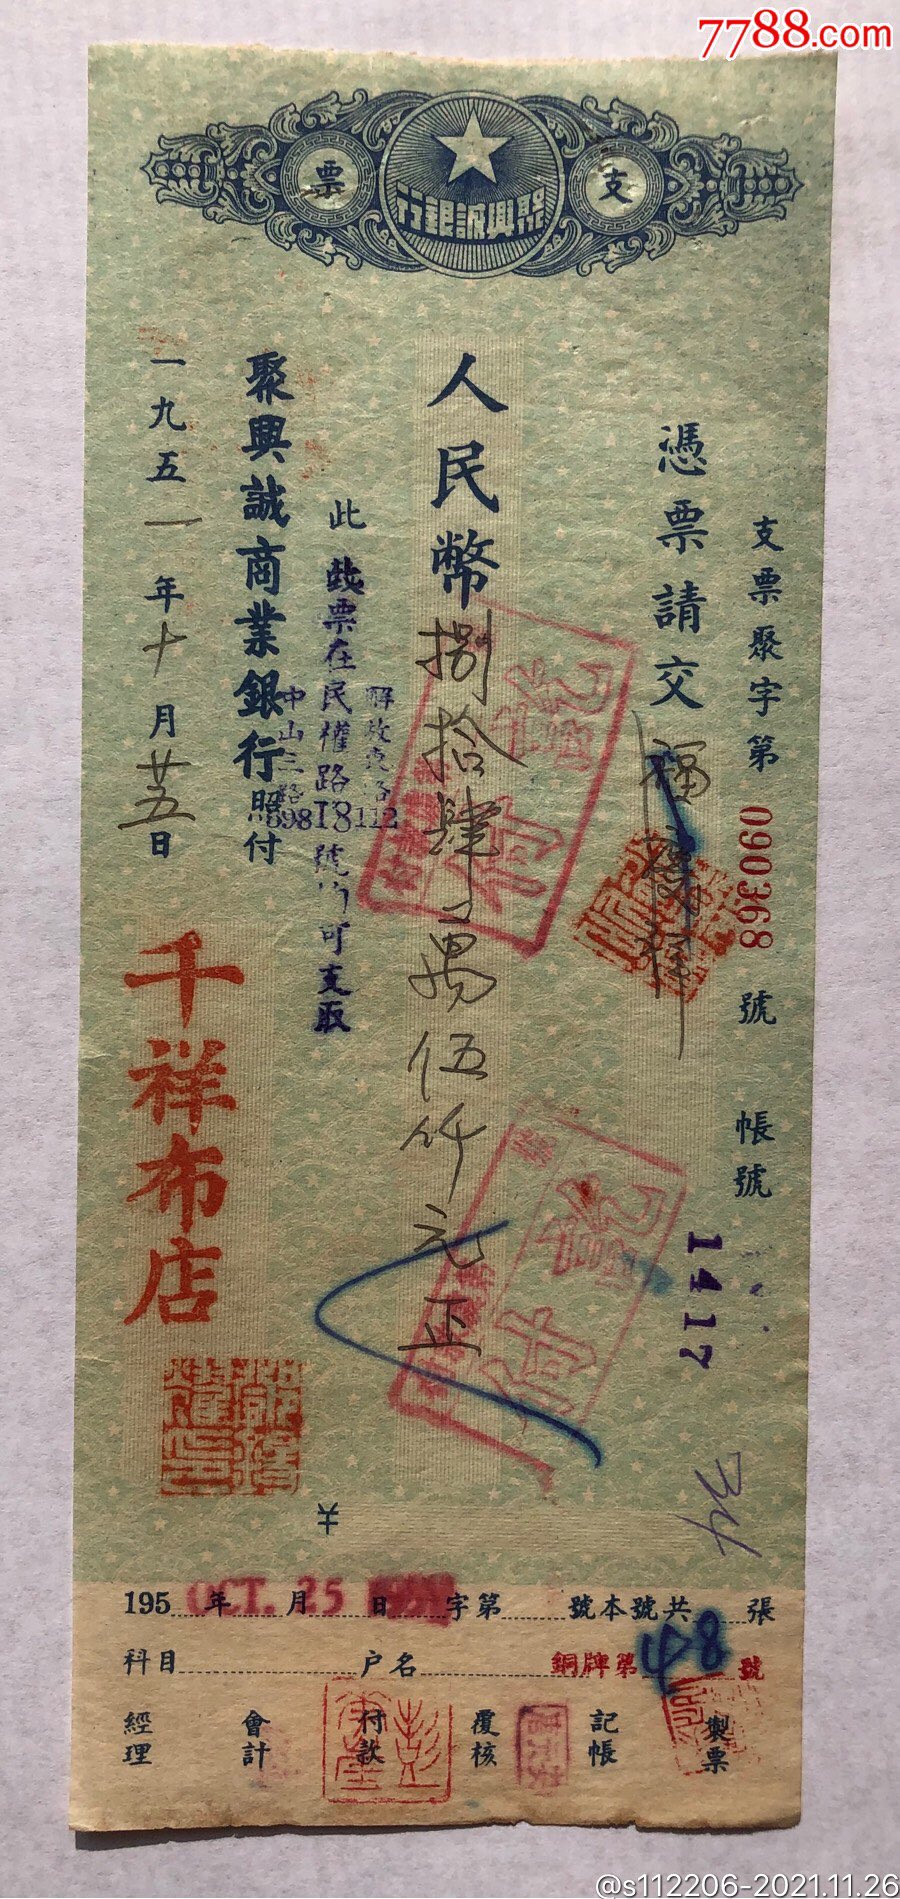 7788.com
支票
聚興誠銀行
支票聚字第090368號 帳號
1417
憑票請交
人民幣捌拾肆萬伍仟元正
此
此票在民權路18號均可支取
解放東路112
中山三路698
聚興誠商業銀行照付
一九五一年十月廿五日
千祥布店
記
付
記
付
34
¥
195 年 月 日 字第 號本號共 張
OCT. 25
科目 户名 銅牌第48號
經理 會計 付款 覆核 記帳 製票
@s112206-2021.11.26